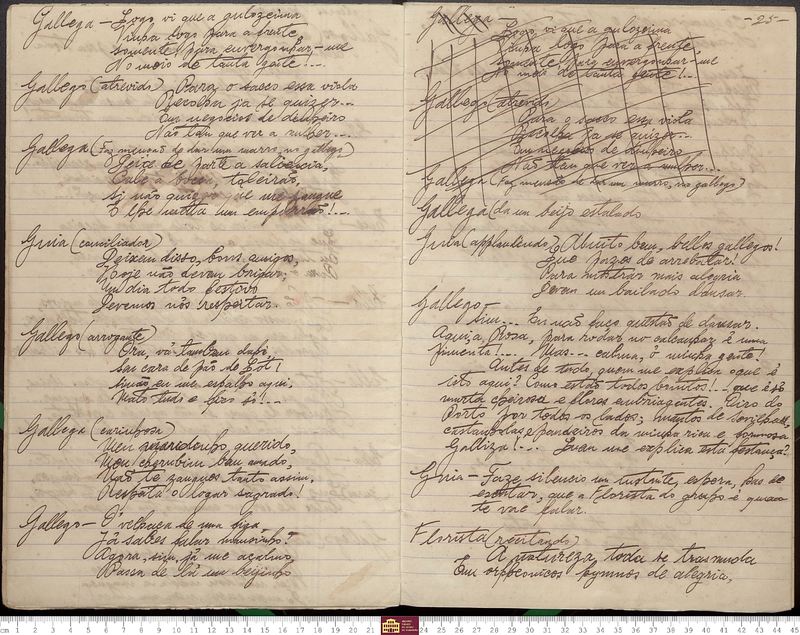 Gallega – Logo vi que a gulozeima
Pupa logo para a frente,
Somente para envergonhar-me
No meio de tanta gente!...
Gallego (atrevido) Para o sacco essa viola
Perceba ja se quizer...
Em negocios de dinheiro
Não tem que ver a mulher...
Gallega (Faz mensão de dar um murro, no gallego)
Deixe de parte a valencia,
Cale a bocca, toleirão,
Si não quizer que me zangue
E lhe metta um empurrão!...
Guia (conciliador)
Deixem disso, bons amigos,
Hoje não devem brigar,
Um dia todo festivo
Devemos nós respeitar.
Gallego (arrogante)
Ora, vá tambem dahi,
Sai cara de pão de Lót!
Sinão eu me espalho aqui,
Mato tudo e fico só!...
Gallega (carinhosa)
Meu maridinho querido,
Meu cherubim bem amado,
Não te zangues tanto assim,
Respeita o logar sagrado!
Gallego – O' velhaca de uma figa,
Já sabes falar mansinho?
Agora, sim, já me acalmo,
Passa de lá um beijinho
– 25 –
Gallega –
Logo vi que a gulozeima
Pupa logo para a frente,
Somente para envergonhar-me
No meio de tanta gente!...
Gallego (atrevido)
Para o sacco essa viola
Perceba ja se quizer...
Em negocios de dinheiro
Não tem que ver a mulher...
Gallega (Faz mensão de dar um murro, no gallego)
Gallega (da um beijo estalado
Guia (applaudindo) Muito bem, bellos gallegos!
Que pazes de arrebatar!
Para mostrar mais alegria
Devem um bailado dansar.
Gallego –
Sim... Eu não faço questão de dansar.
Aquija, Rosa, para rodar no calcanhar é uma
pimenta!... Mas... calma, ó minha gente!
Antes de tudo, quem me explica o que é
isto aqui? Como estão todos bonitos!... que é só
murta cheirosa e flores embriagantes. Giro do
Porto por todos os lados; muitos de
castanholas e pandeiros da minha rica e formosa
Galliza!... Quem me explica esta festança?
Guia – Faze silencio um instante, espera, has de
escutar, que a Florista do grupo é quem
te vae falar.
Florista (recitando)
A natureza toda se trasmuda
Em orpheonicos hymnos de alegria,